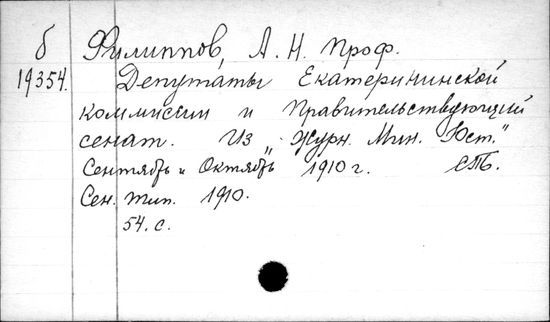 б Филиппов, А. Н. проф.
19354. Депутаты Екатерининской
коммиссии и Правительствующий
сенат. Из „Журн. Мин. Юст."
Сентябрь и Октябрь 1910 г. СПБ.
Сен. тип. 1910.
54. с.